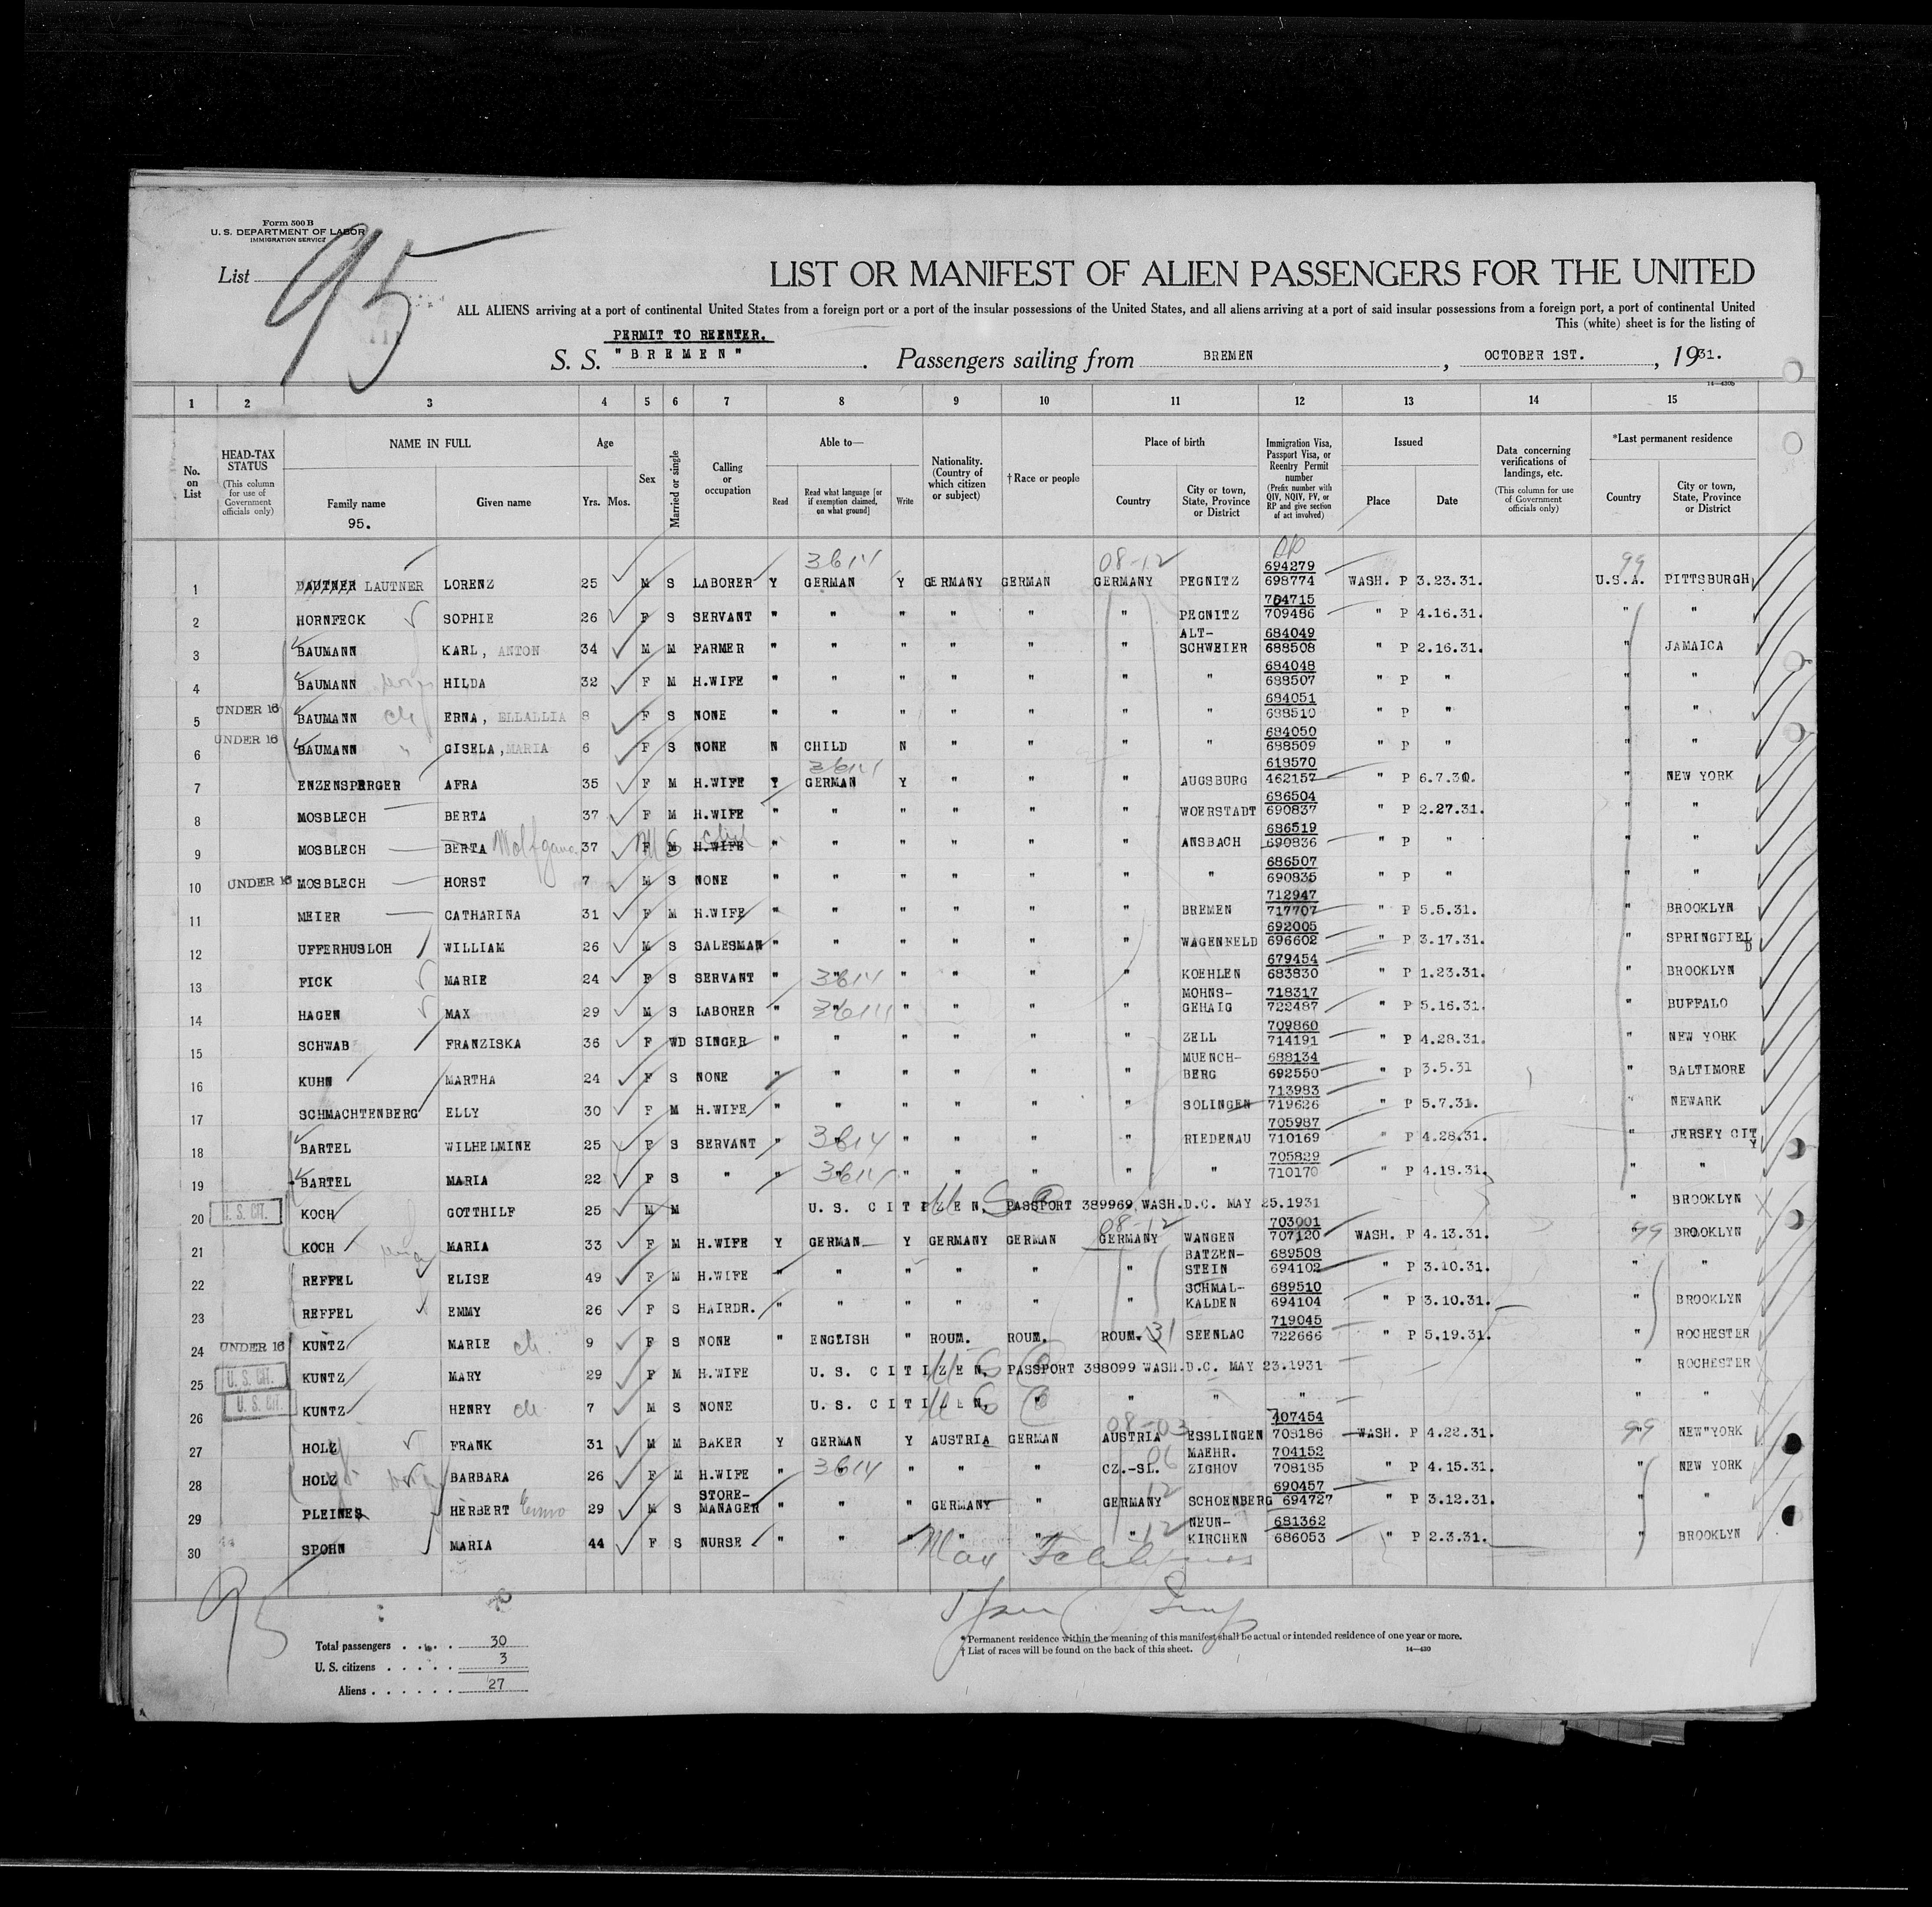 Form 500 B
U. S. DEPARTMENT OF LABOR
IMMIGRATION SERVICE
List 95
LIST OR MANIFEST OF ALIEN PASSENGERS FOR THE UNITED
ALL ALIENS arriving at a port of continental United States from a foreign port or a port of the insular possessions of the United States, and all aliens arriving at a port of said insular possessions from a foreign port, a port of continental United
This (white) sheet is for the listing of
PERMIT TO REENTER.
S. S. "BREMEN". Passengers sailing from BREMEN, OCTOBER 1ST., 1931.
14—430b
1 2 3 4 5 6 7 8 9 10 11 12 13 14 15
No. on List
HEAD-TAX STATUS (This column for use of Government officials only)
NAME IN FULL
Family name
95.
Given name
Age
Yrs. Mos.
Sex
Married or single
Calling or occupation
Able to—
Read
Read what language [or if exemption claimed, on what ground]
Write
Nationality. (Country of which citizen or subject)
†Race or people
Place of birth
Country
City or town, State, Province or District
Immigration Visa, Passport Visa, or Reentry Permit number (Prefix number with QIV, NQIV, PV, or RP and give section of act involved)
Issued
Place
Date
Data concerning verifications of landings, etc. (This column for use of Government officials only)
*Last permanent residence
Country
City or town, State, Province or District
3614 08-12 99
1 LAUTNER LORENZ 25 M S LABORER Y GERMAN Y GERMANY GERMAN GERMANY PEGNITZ 694279 698774 WASH. P 3.23.31. U.S.A. PITTSBURGH
2 HORNFECK SOPHIE 26 F S SERVANT " " " " " " PEGNITZ 704715 709486 " P 4.16.31. " "
3 BAUMANN KARL, ANTON 34 M M FARMER " " " " " " ALT-SCHWEIER 684049 688508 " P 2.16.31. " JAMAICA
4 BAUMANN HILDA 32 F M H.WIFE " " " " " " " 684048 688507 " P " " "
UNDER 16 5 BAUMANN ch ERNA, ELLALLIA 8 F S NONE " " " " " " " 684051 688510 " P " " "
UNDER 16 6 BAUMANN " GISELA, MARIA 6 F S NONE N CHILD N " " " " 684050 688509 " P " " "
3614
7 ENZENSPERGER AFRA 35 F M H.WIFE Y GERMAN Y " " " AUGSBURG 618570 462157 " P 6.7.30. " NEW YORK
8 MOSBLECH BERTA 37 F M H.WIFE " " " " " " WOERSTADT 686504 690837 " P 2.27.31. " "
9 MOSBLECH BERTA Wolfgang 37 F M M S H.WIFE child " " " " " " ANSBACH 686519 690836 " P " " "
10 UNDER 16 MOSBLECH HORST 7 M S NONE " " " " " " " 686507 690835 " P " " "
11 MEIER CATHARINA 31 F M H.WIFE " " " " " " BREMEN 712947 717707 " P 5.5.31. " BROOKLYN
12 UFFERHUSLOH WILLIAM 26 M S SALESMAN " " " " " " WAGENFELD 692005 696602 " P 3.17.31. " SPRINGFIELD
13 FICK MARIE 24 F S SERVANT " " 3614 " " " " KOEHLEN 679454 683830 " P 1.23.31. " BROOKLYN
14 HAGEN MAX 29 M S LABORER " " 3614 " " " " MOHNS-GEHAIG 718317 722487 " P 5.16.31. " BUFFALO
15 SCHWAB FRANZISKA 36 F WD SINGER " " " " " " ZELL 709860 714191 " P 4.28.31. " NEW YORK
16 KUHN MARTHA 24 F S NONE " " " " " " MUENCH-BERG 688134 692550 " P 3.5.31 " BALTIMORE
17 SCHMACHTENBERG ELLY 30 F M H.WIFE " " " " " " SOLINGEN 713983 719626 " P 5.7.31. " NEWARK
18 BARTEL WILHELMINE 25 F S SERVANT " " 3614 " " " " RIEDENAU 705987 710169 " P 4.28.31. " JERSEY CITY
19 BARTEL MARIA 22 F S " " " 3614 " " " " " 705829 710170 " P 4.18.31. " "
20 U. S. CIT. KOCH GOTTHILF 25 M M U. S. CITIZEN, U S C PASSPORT 389969 WASH.D.C. MAY 25.1931 " BROOKLYN
08-12 99
21 KOCH MARIA 33 F M H.WIFE Y GERMAN Y GERMANY GERMAN GERMANY WANGEN 703001 707120 WASH. P 4.13.31. " BROOKLYN
22 REFFEL ELISE 49 F M H.WIFE " " " " " " BATZEN-STEIN 689508 694102 " P 3.10.31. " "
23 REFFEL EMMY 26 F S HAIRDR. " " " " " " SCHMAL-KALDEN 689510 694104 " P 3.10.31. " BROOKLYN
24 UNDER 16 KUNTZ MARIE ch. 9 F S NONE " ENGLISH " ROUM. ROUM. ROUM. 31 SEENLAC 719045 722666 " P 5.19.31. " ROCHESTER
25 U. S. CIT. KUNTZ MARY 29 F M H.WIFE U. S. CITIZEN, U S C PASSPORT 388099 WASH.D.C. MAY 23.1931 " ROCHESTER
26 U. S. CIT. KUNTZ HENRY ch 7 M S NONE U. S. CITIZEN, U S C " " " " " "
27 HOLZ FRANK 31 M M BAKER Y GERMAN Y AUSTRIA GERMAN AUSTRIA 08-03 ESSLINGEN 707454 708186 WASH. P 4.22.31. 99 " NEW "YORK
28 HOLZ BARBARA 26 F M H.WIFE " " 3614 " " " CZ.-SL. 06 MAEHR. ZIGHOV 704152 708185 " P 4.15.31. " NEW YORK
29 PLEINES HERBERT 29 M S STORE-MANAGER " " " GERMANY " GERMANY 12 SCHOENBERG 690457 694727 " P 3.12.31. " "
30 SPOHN MARIA 44 F S NURSE " " " " " " 12 NEUN-KIRCHEN 681362 686053 " P 2.3.31. " BROOKLYN
95
Total passengers 30
U. S. citizens 3
Aliens 27
*Permanent residence within the meaning of this manifest shall be actual or intended residence of one year or more.
†List of races will be found on the back of this sheet.
14—430